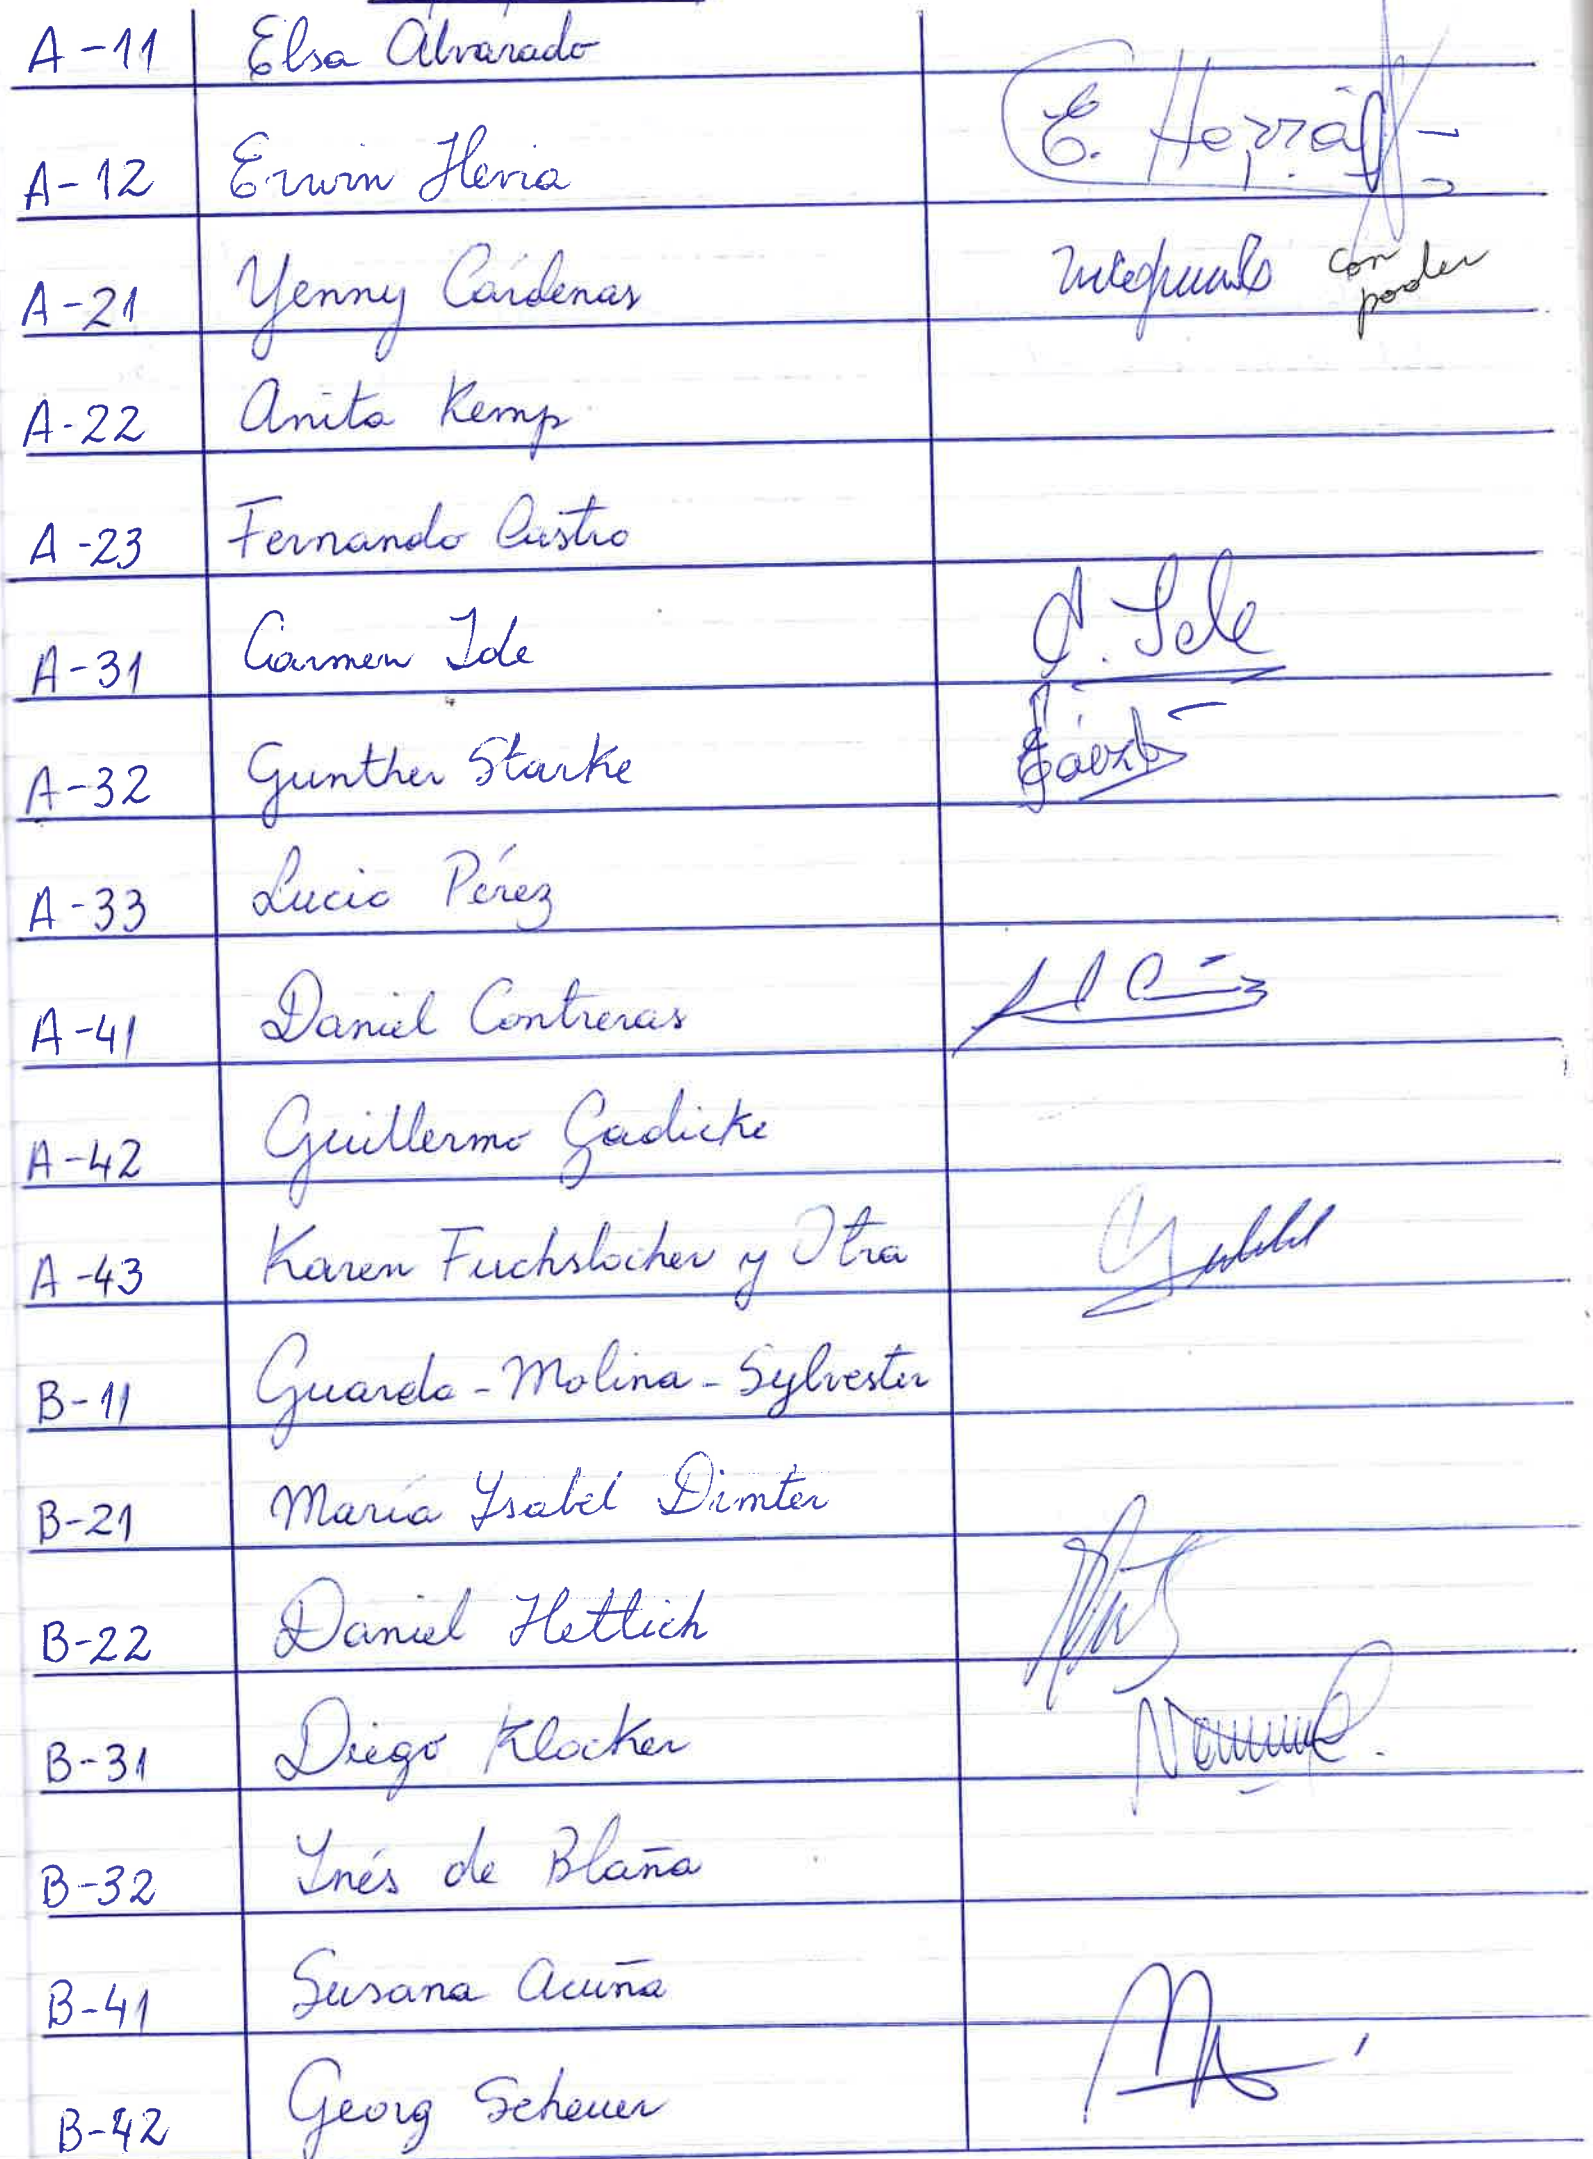 A-11 Elsa Alvarado
A-12 Erwin Hevia E. Hernán
A-21 Yenny Cárdenas con poder
A-22 Anita Kemp
A-23 Fernando Castro
A-31 Carmen Ide C. Ide
A-32 Gunther Starke
A-33 Lucia Pérez
A-41 Daniel Contreras
A-42 Guillermo Gadicke
A-43 Karen Fuchslocher y Otra
B-11 Guarda-Molina-Sylvester
B-21 María Ysabel Dimter
B-22 Daniel Hettich
B-31 Diego Klocker
B-32 Ynés de Blaña
B-41 Susana Acuña
B-42 Georg Scheuer